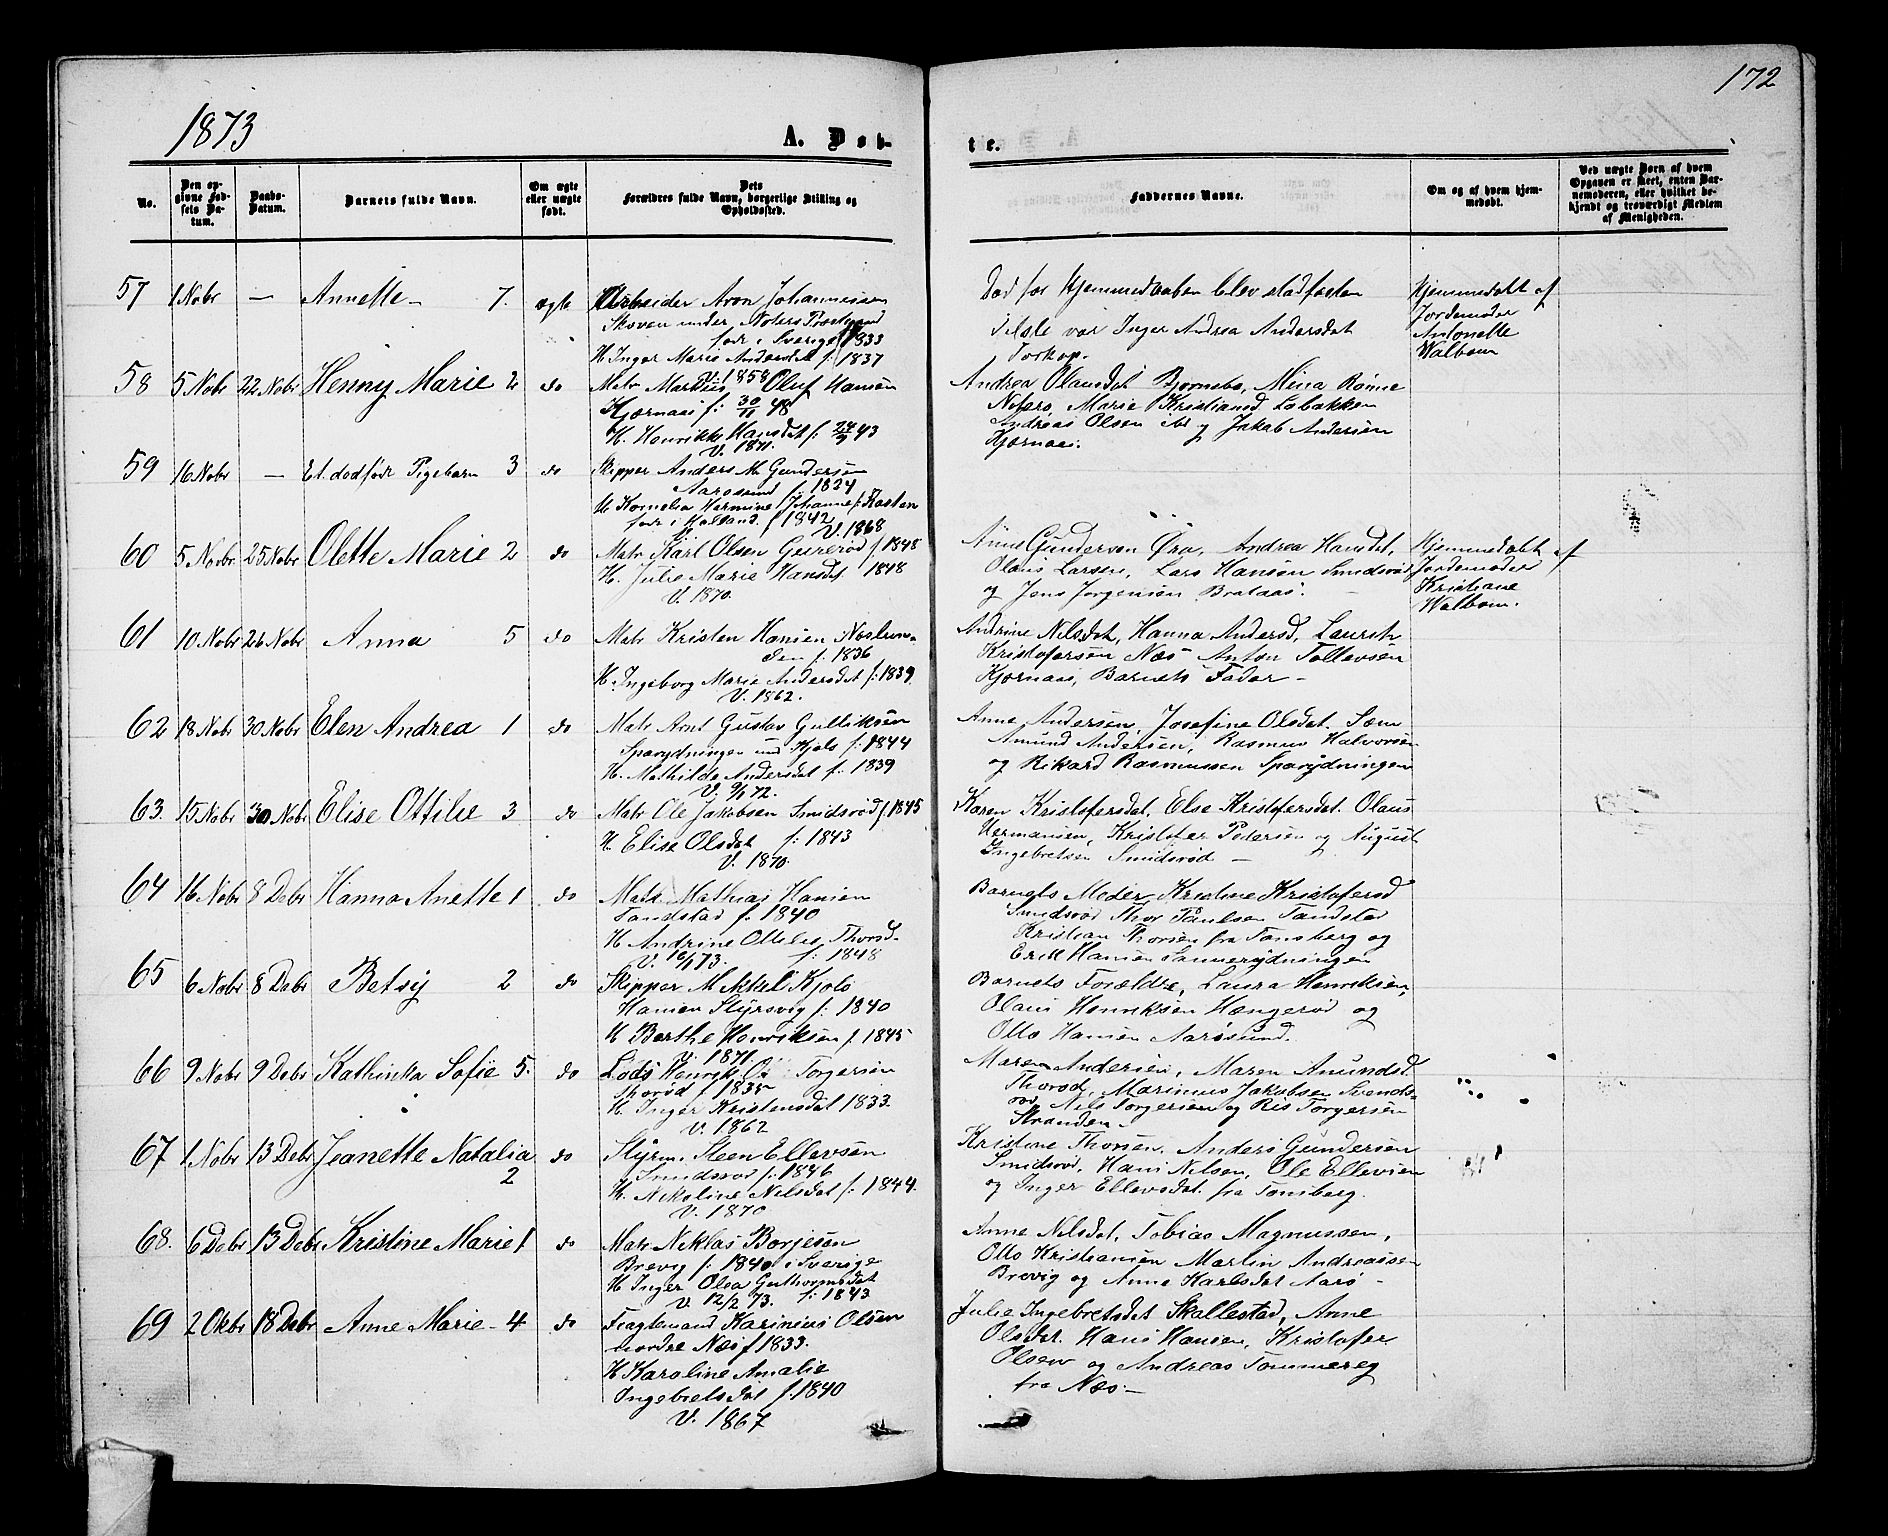 172
1873
A. Døb-
te.
No.
Den opgivne Fødsels Datum.
Daabs-Datum.
Barnets fulde Navn.
Om ægte eller uægte født.
Dets Forældres fulde Navn, borgerlige Stilling og Opholdssted.
Faddernes Navne.
Om og af hvem hjemmedøbt.
Ved uægte Børn af hvem Opgaven er skeet, enten Barnemoderen, eller hvilket bekjendt og troværdigt Medlem af Menigheden.
57 1 Nobr — Annette — 7. ægte Arbeider Aron Johannesen
Skoven under Nøterø Præstgaard
født i Sverige 1833
H. Inger Marie Andersdat f: 1837
V. 1858
Død før Hjemmedaaben blev stadfæstet
Tilste var Inger Andrea Andersdat
Torkop.
Hjemmedøbt af
Jordemoder
Antonette
Walbom
58 5 Nobr 22 Nobr Henny Marie 2 do Matr Markus Oluf Hansen
Kjørnaas f: 30/11 48
H. Henrikke Hansdat f: 24/9 43
V. 1871.
Andrea Olausdat Bjørnebo, Mina Rønne
Nøterø, Marie Kristiansd Løbakken
Andreas Olsen ibd og Jakob Andersen
Kjørnaas.
59 16 Nobr — Et dødfødt Pigebarn 3 do Skipper Anders M. Gundersen
Aarøsund f. 1824
H Kornelia Hermine Johanne f: Kasten
født i Holland f 1842
V. 1868
60 5 Nobr 25 Nobr Olette Marie 2 do Matr Karl Olsen Geirerød f 1845
H. Julie Marie Hansdat 1848
V. 1870.
Anne Gundersen Øra, Andrea Hansdat,
Olaus Larsen, Lars Hansen Smidsrød
og Jens Jørgensen Brataas.
Hjemmedøbt af
Jordemoder
Kristiane
Walbom.
61 10 Nobr 26 Nobr Anna 5 do Matr Kristen Hansen Næslun-
den f: 1836
H. Ingeborg Marie Andersdat f: 1839.
V. 1862.
Andrine Nilsdat, Hanna Andersd, Laurits
Kristofersen Næs Anton Tollevsen
Kjørnaas, Barnets Fader —
62 18 Nobr 30 Nobr Elen Andrea 1 do Matr Arnt Gustav Gulliksen
Sparrydningen und Hjels f: 1844
H. Mathilde Andersdat f. 1839
V. 9/1 72.
Anne Andersen, Josefine Olsdat. Sem
Amund Andersen, Rasmus Halvorsen
og Rikard Rasmussen Sparrydningen
63. 15 Nobr 30 Nobr Elise Ottilie 3 do Matr Ole Jakobsen Smidsrød f. 1845
H. Elise Olsdat f: 1843
V. 1870.
Karen Kristofersdat, Else Kristofersdat. Olaus
Hermansen, Kristofer Pedersen og August
Ingebretsen Smidsrød —
64 16 Nobr 8 Debr Hanna Anette 1 do Matr Mathias Hansen
Tandstad f. 1840
H. Andrine Ottilie Thorsd.
V. 16/1 73. f: 1848
Barnets Moder, Kristine Kristofersd
Smidsrød Thor Paulsen Tandstad
Kristian Thorsen fra Tønsberg og
Erik Hansen Sannerydningen
65 6 Nobr 8 Debr Betsy 2 do Skipper Mikkel Kjøls
Hansen Styrsvig f: 1840
H Berthe Henriksen f. 1845
V. 1871.
Barnets Forældre, Laura Henriksen,
Olaus Henriksen Hængerød og
Otto Hansen Aarøsund.
66 9 Nobr 9 Debr Kathinka Sofie 5. do Lods Henrik O. Torgersen
Thorød f 1835
H Inger Kristensdat 1833.
V. 1862
Maren Andersen, Maren Amundsd
Thorød, Marinus Jakobsen Svends-
rød, Nils Torgersen og Ris Torgersen
Stranden —
67 1 Nobr 13 Debr Jeanette Natalia 2 do Styrm. Steen Ellevsen
Smidsrød f: 1846
H. Nikoline Nilsdat f: 1844.
V. 1870
Kristine Thorsen, Anders Gundersen
Smidsrød, Hans Nilsen, Ole Ellevsen
og Inger Ellevsdat. fra Tønsberg.
68. 6 Debr 13 Debr Kristine Marie 1 do Matr Niklas Børjeson
Brevig f: 1840 i Sverige
H Inger Olea Guthormsdat
V. 12/2 73. f: 1843
Anne Nilsdat, Tobias Magnussen,
Otto Kristiansen Martin Andreasse-
Brevig og Anne Karlsdat Aarø —
69 2 Okbr 18 Debr Anne Marie — 4 do Fragtemand Karinius Olsen
nordre Næs f 1833.
H Karoline Amalie
Ingebretsdat f. 1840
V. 1867
Julie Ingebretsdat Skallestad, Anne
Olsdat. Hans Hansen, Kristofer
Olsen og Andreas Tommereg
fra Næs —